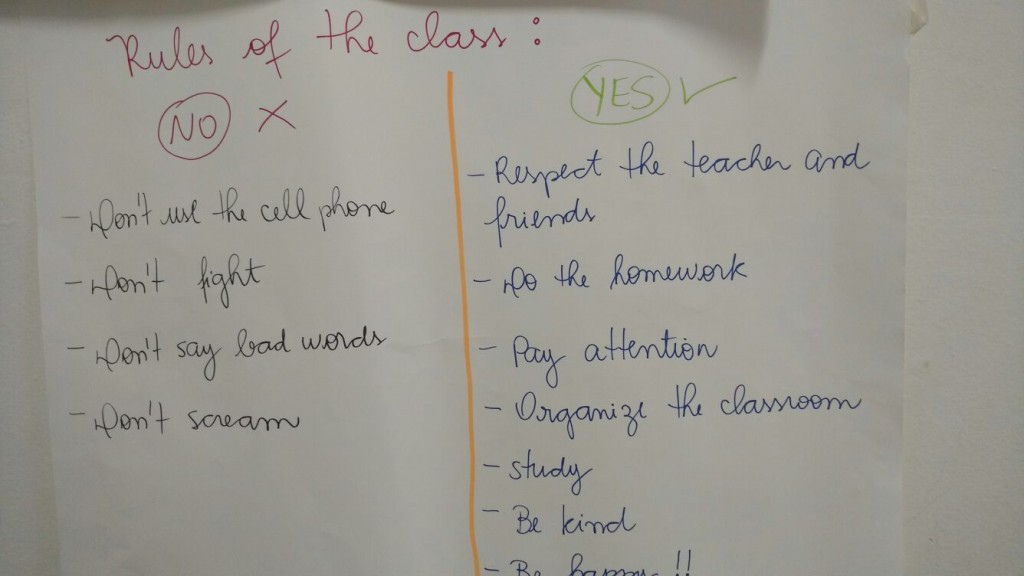 Rules of the class:
NO X
- Don't use the cell phone
- Don't fight
- Don't say bad words
- Don't scream
YES ✓
- Respect the teacher and
friends
- Do the homework
- Pay attention
- Organize the classroom
- study
- Be kind
- Be happy!!